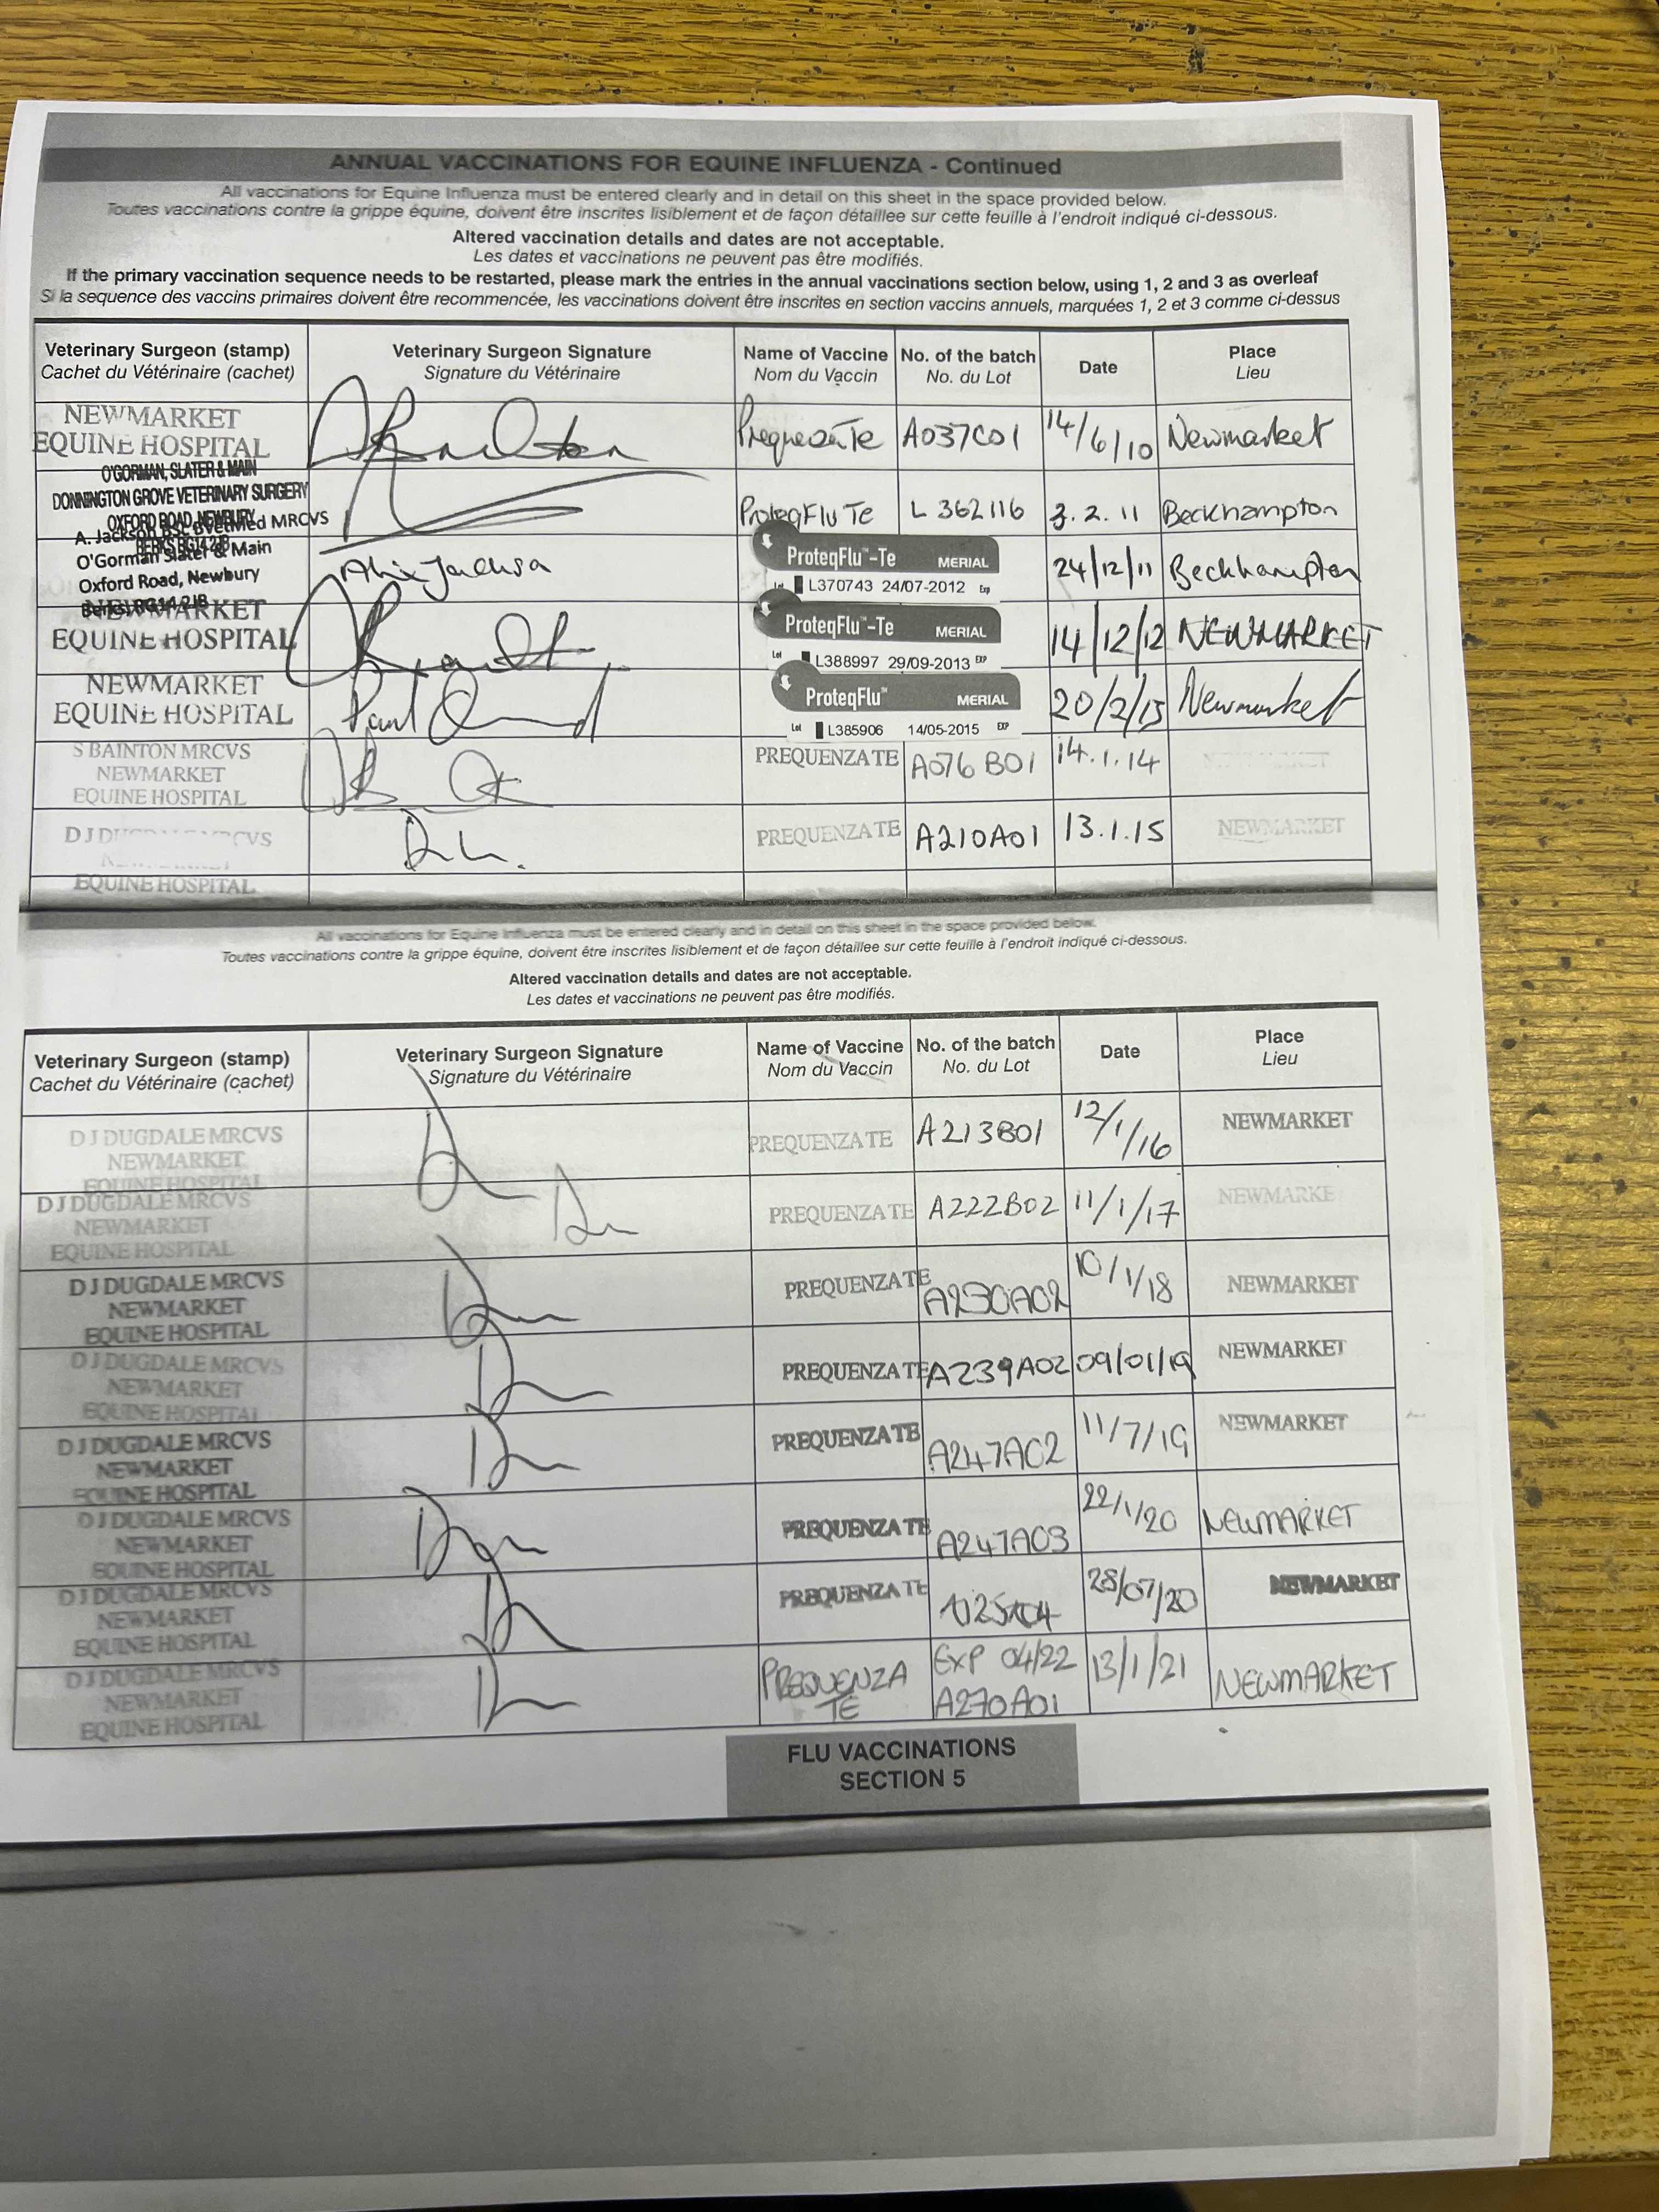 ANNUAL VACCINATIONS FOR EQUINE INFLUENZA - Continued
All vaccinations for Equine Influenza must be entered clearly and in detail on this sheet in the space provided below.
Toutes vaccinations contre la grippe équine, doivent être inscrites lisiblement et de façon détaillee sur cette feuille à l'endroit indiqué ci-dessous.
Altered vaccination details and dates are not acceptable.
Les dates et vaccinations ne peuvent pas être modifiés.
If the primary vaccination sequence needs to be restarted, please mark the entries in the annual vaccinations section below, using 1, 2 and 3 as overleaf
Si la sequence des vaccins primaires doivent être recommencée, les vaccinations doivent être inscrites en section vaccins annuels, marquées 1, 2 et 3 comme ci-dessus
Veterinary Surgeon (stamp) Veterinary Surgeon Signature Name of Vaccine No. of the batch Date Place
Cachet du Vétérinaire (cachet) Signature du Vétérinaire Nom du Vaccin No. du Lot Lieu
NEWMARKET
EQUINE HOSPITAL PrequenzaTe A037C01 14/6/10 Newmarket
O'GORMAN, SLATER & MAIN
DONNINGTON GROVE VETERINARY SURGERY
OXFORD ROAD, NEWBURY
BERKS RG14 2JB
ProteqFlu Te L 362116 3.2.11 Beckhampton
A. Jackson BSc BVetMed MRCVS
O'Gorman Slater & Main
Oxford Road, Newbury
Berks, RG14 2JB
Alix Jackson ProteqFlu™-Te MERIAL 24/12/11 Beckhampton
Lot L370743 24/07/2012 Exp
NEWMARKET
EQUINE HOSPITAL ProteqFlu™-Te MERIAL 14/12/12 NEWMARKET
Lot L388997 29/09/2013 EXP
NEWMARKET
EQUINE HOSPITAL Paul ProteqFlu™ MERIAL 20/2/13 Newmarket
Lot L385906 14/05/2015 EXP
S BAINTON MRCVS
NEWMARKET
EQUINE HOSPITAL
PREQUENZA TE A076 B01 14.1.14
D J MRCVS
EQUINE HOSPITAL
PREQUENZA TE A210A01 13.1.15 NEWMARKET
All vaccinations for Equine Influenza must be entered clearly and in detail on this sheet in the space provided below.
Toutes vaccinations contre la grippe équine, doivent être inscrites lisiblement et de façon détaillee sur cette feuille à l'endroit indiqué ci-dessous.
Altered vaccination details and dates are not acceptable.
Les dates et vaccinations ne peuvent pas être modifiés.
Veterinary Surgeon (stamp) Veterinary Surgeon Signature Name of Vaccine No. of the batch Date Place
Cachet du Vétérinaire (cachet) Signature du Vétérinaire Nom du Vaccin No. du Lot Lieu
D J DUGDALE MRCVS
NEWMARKET
EQUINE HOSPITAL
PREQUENZA TE A213B01 12/1/16 NEWMARKET
D J DUGDALE MRCVS
NEWMARKET
EQUINE HOSPITAL
PREQUENZA TE A222B02 11/1/17 NEWMARKE
D J DUGDALE MRCVS
NEWMARKET
EQUINE HOSPITAL
PREQUENZA TE A230A02 10/1/18 NEWMARKET
D J DUGDALE MRCVS
NEWMARKET
EQUINE HOSPITAL
PREQUENZA TE A239A02 09/01/19 NEWMARKET
D J DUGDALE MRCVS
NEWMARKET
EQUINE HOSPITAL
PREQUENZA TE A247A02 11/7/19 NEWMARKET
D J DUGDALE MRCVS
NEWMARKET
EQUINE HOSPITAL
PREQUENZA TE A247A03 22/1/20 NEWMARKET
D J DUGDALE MRCVS
NEWMARKET
EQUINE HOSPITAL
PREQUENZA TE 28/07/20 NEWMARKET
D J DUGDALE MRCVS
NEWMARKET
EQUINE HOSPITAL
PREQUENZA TE EXP 04/22 A270A01 13/1/21 NEWMARKET
FLU VACCINATIONS
SECTION 5